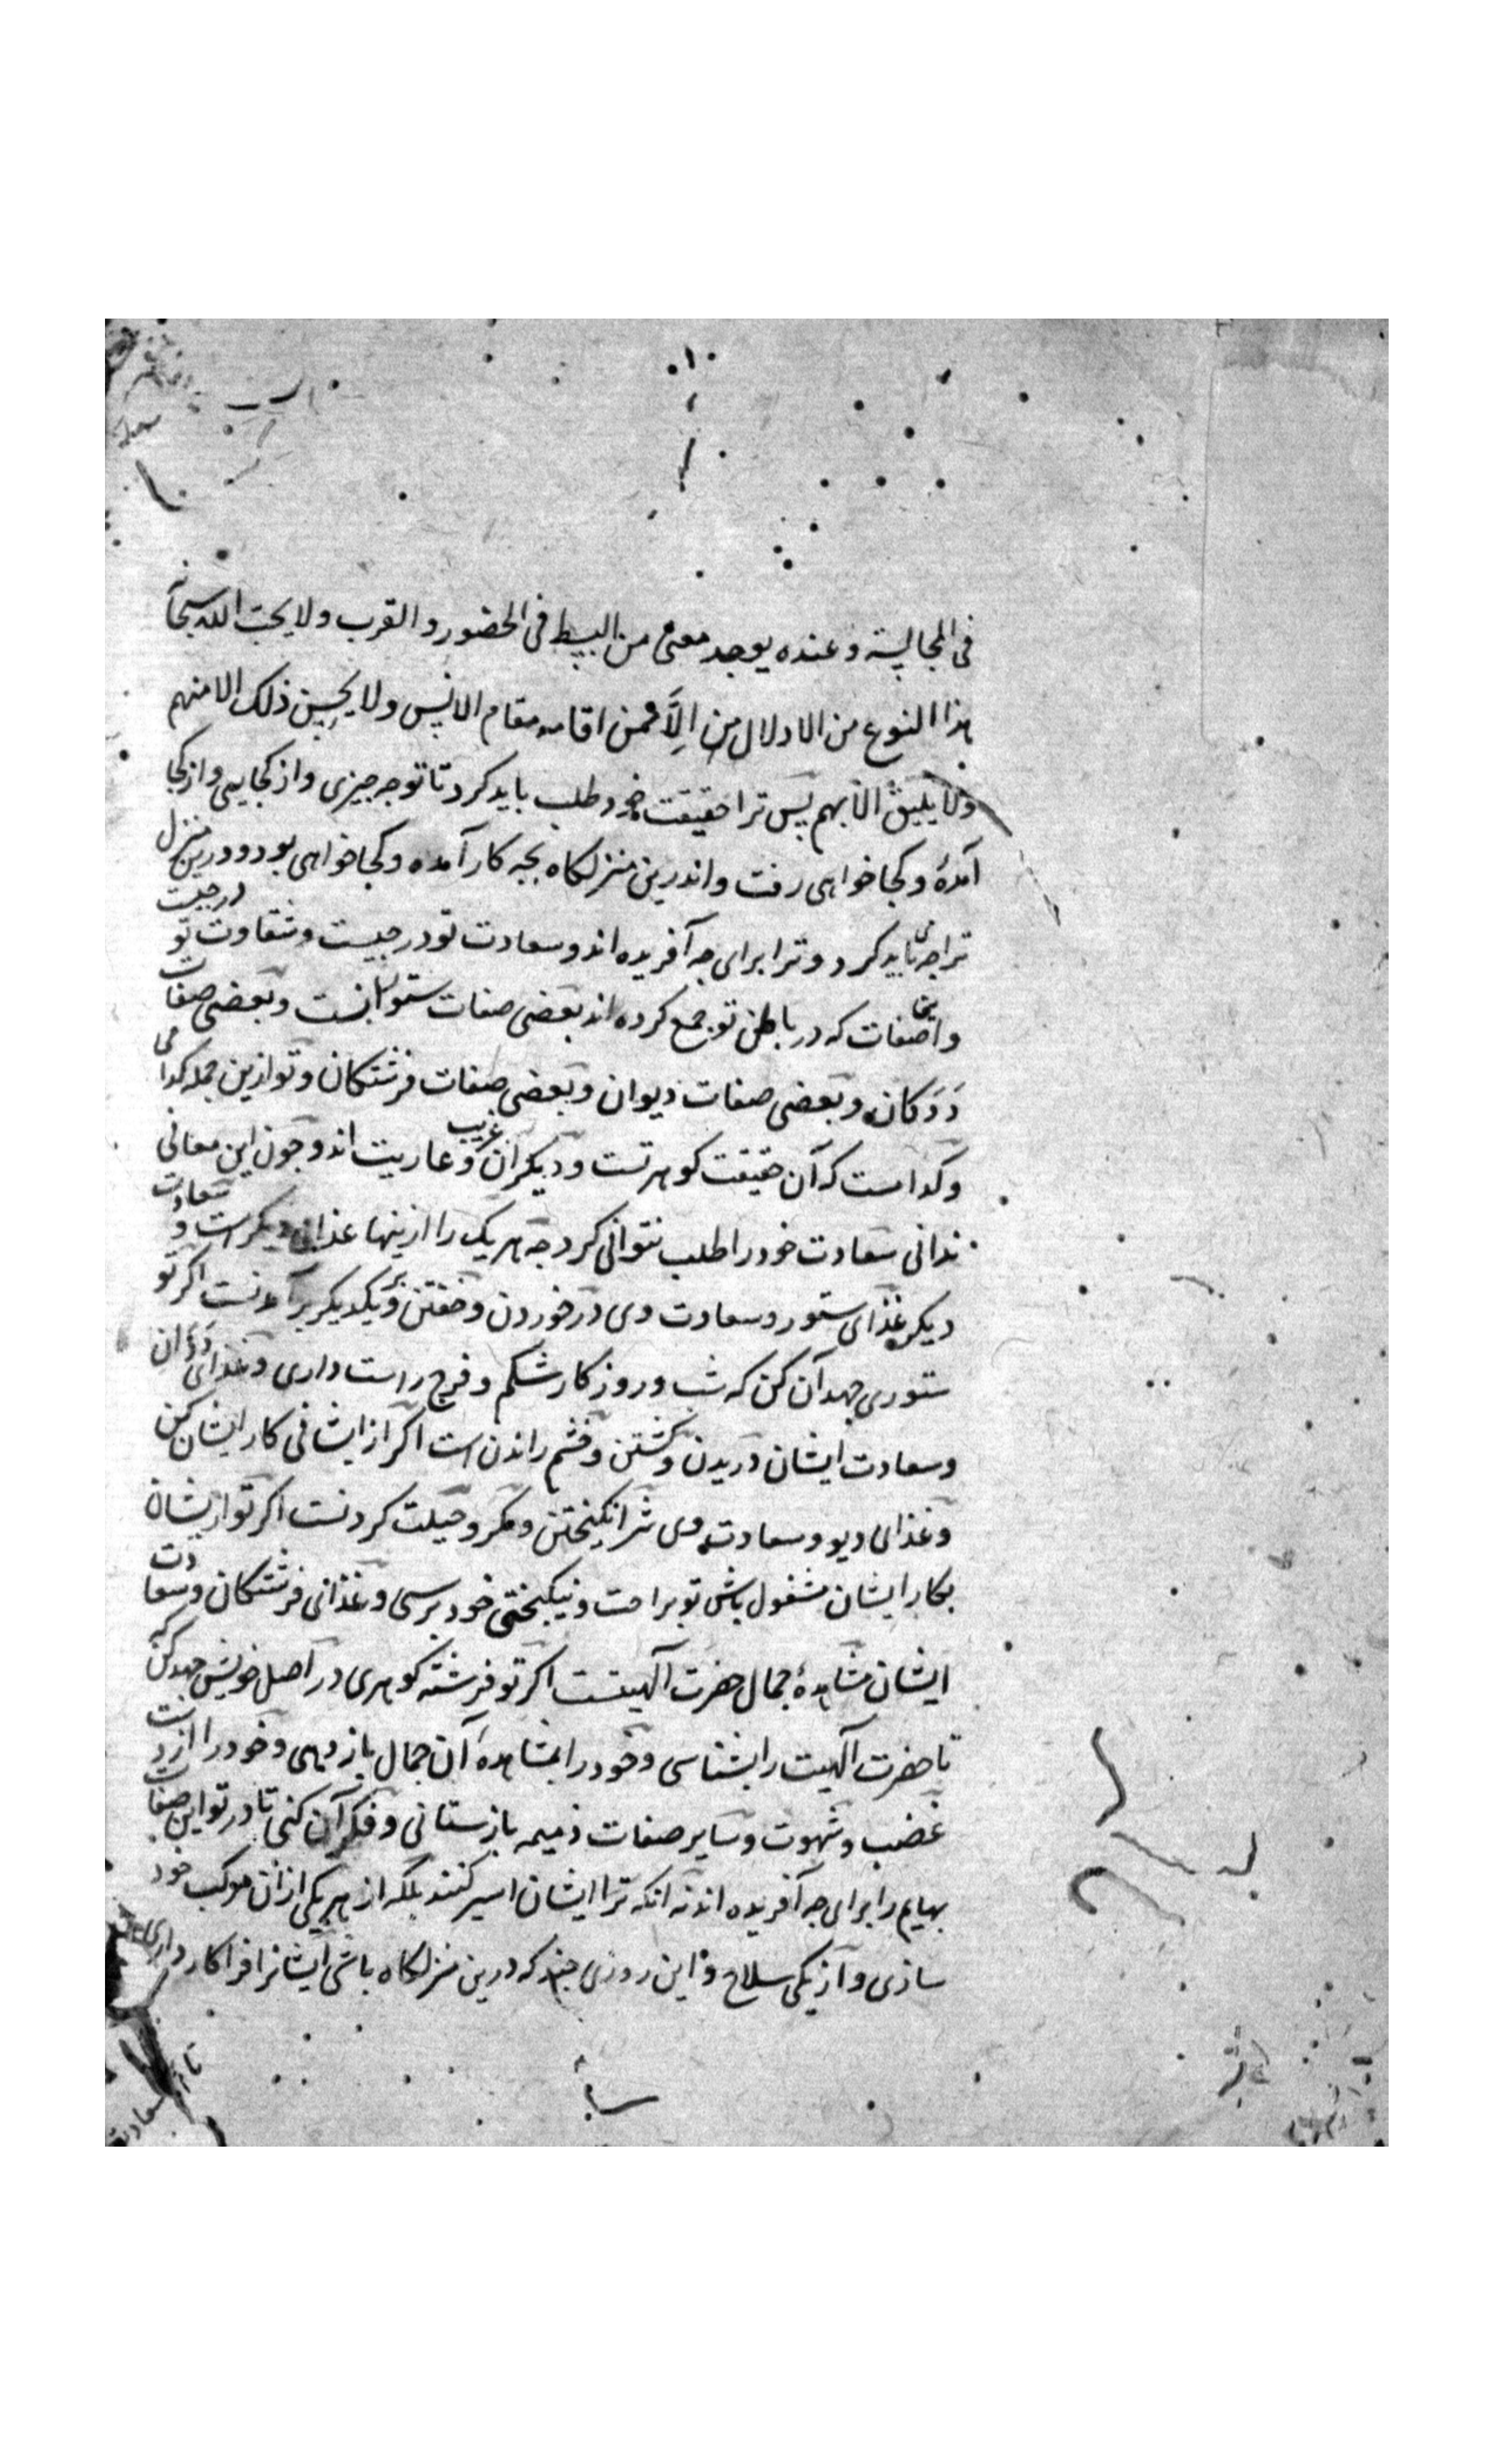 فی المجالسة و عنده یوجد معنی من البسط فی الحضور و القرب ولا یحب الله سبحا
هذا النوع من الادلال من الا ممن اقامه مقام الانس ولا یحسن ذلک الا منهم
ولا یلیق الا بهم پس ترا حقیقت خود طلب باید کرد تا تو جه چیزی و از کجایی و از کجا
آمدهٔ و کجا خواهی رفت و اندرین منزلکاه بچه کار آمده و کجا خواهی بود و درین منزل
ترا جه باید کرد و ترا برای جه آفریده اند و سعادت تو در جیست و شقاوت تو درجیست
و این صفات که در باطن تو جمع کرده اند بعضی صفات ستورانست و بعضی صفات
ددکان و بعضی صفات دیوان و بعضی صفات فرشتکان و تو ازین جمله کدامی
و کدامست که آن حقیقت کوهر تست و دیکران غریب و عاریت اند و جون این معانی
ندانی سعادت خود را طلب نتوانی کرد جه هر یک را ازینها غذای دیکر است و سعادت
دیکر غذای ستور و سعادت وی در خوردن و خفتن و بر یکدیکر برآمدنست اکر تو
ستوری جهد آن کن که شب و روز کار شکم و فرج راست داری و غذای ددان
و سعادت ایشان دریدن و کشتن و خشم راندن است اکر از ایشانی کار ایشان کن
و غذای دیو و سعادت وی شر انکیختن و مکر و حیلت کردنست اکر تو ازیشان
بکار ایشان مشغول باش تو براحت و نیکبختی خود برسی و غذای فرشتکان و سعادت
ایشان مشاهدهٔ جمال حضرت الهیتست اکر تو فرشته کوهری در اصل خویش جهد کن که
تا حضرت الهیت را بشناسی و خود را بمشاهدهٔ آن جمال باز دهی و خود را از دست
غضب و شهوت و سایر صفات ذمیمه باز ستانی و فکر آن کنی تا در تو این صفات
بهایم را برای جه آفریده اند نه انکه ترا ایشان اسیر کنند بلکه از هر یکی ازان مرکب خود
سازی و از یکی سلاح و این روزی چند که درین منزلکاه باشی ایشانرا فراکار داری